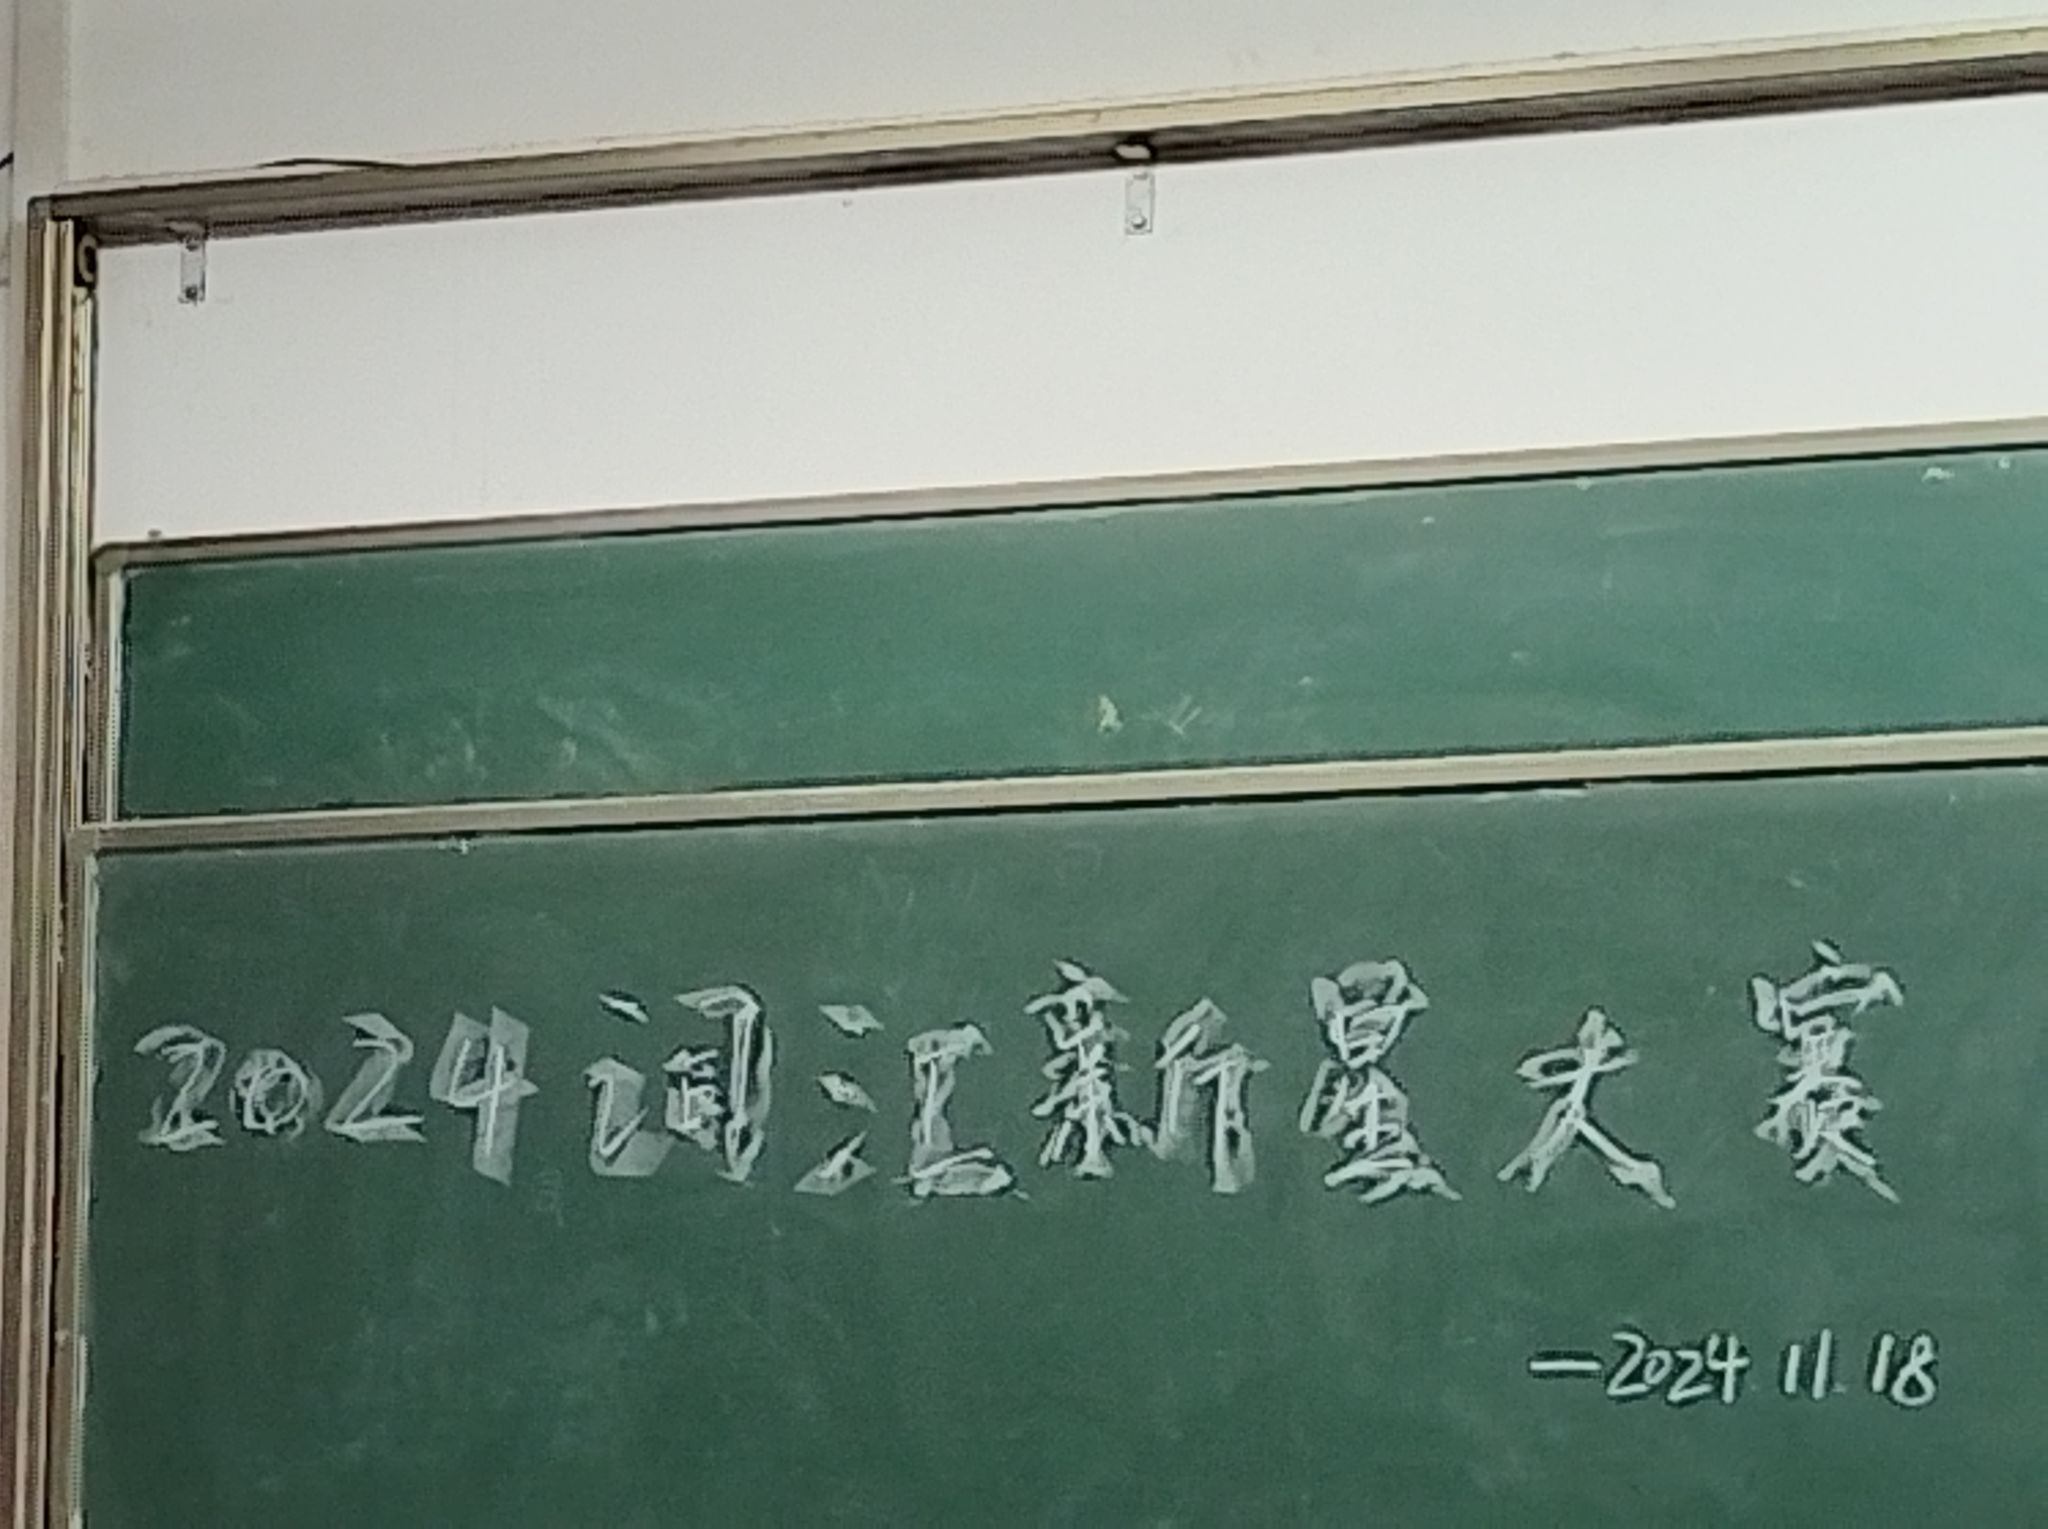 2024词汇新星大赛
—2024.11.18